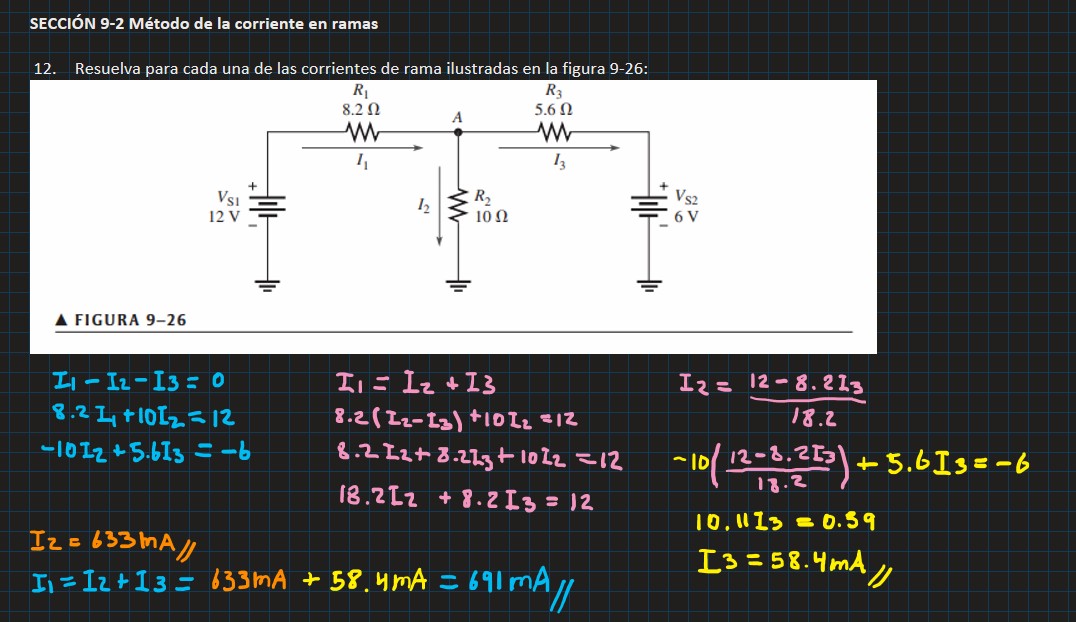 SECCIÓN 9-2 Método de la corriente en ramas
12. Resuelva para cada una de las corrientes de rama ilustradas en la figura 9-26:
R1
8.2 Ω
I1
A
R3
5.6 Ω
I3
VS1
12 V
+
−
I2
R2
10 Ω
+
−
VS2
6 V
▲ FIGURA 9–26
I1 - I2 - I3 = 0
8.2 I1 + 10I2 = 12
-10I2 + 5.6I3 = -6
I1 = I2 + I3
8.2(I2 - I3) + 10I2 = 12
8.2I2 + 8.2I3 + 10I2 = 12
18.2I2 + 8.2I3 = 12
I2 = 12 - 8.2I3
18.2
-10(12 - 8.2I3) + 5.6I3 = -6
18.2
10.11I3 = 0.59
I3 = 58.4mA //
I2 = 633mA //
I1 = I2 + I3 = 633mA + 58.4mA = 691mA //